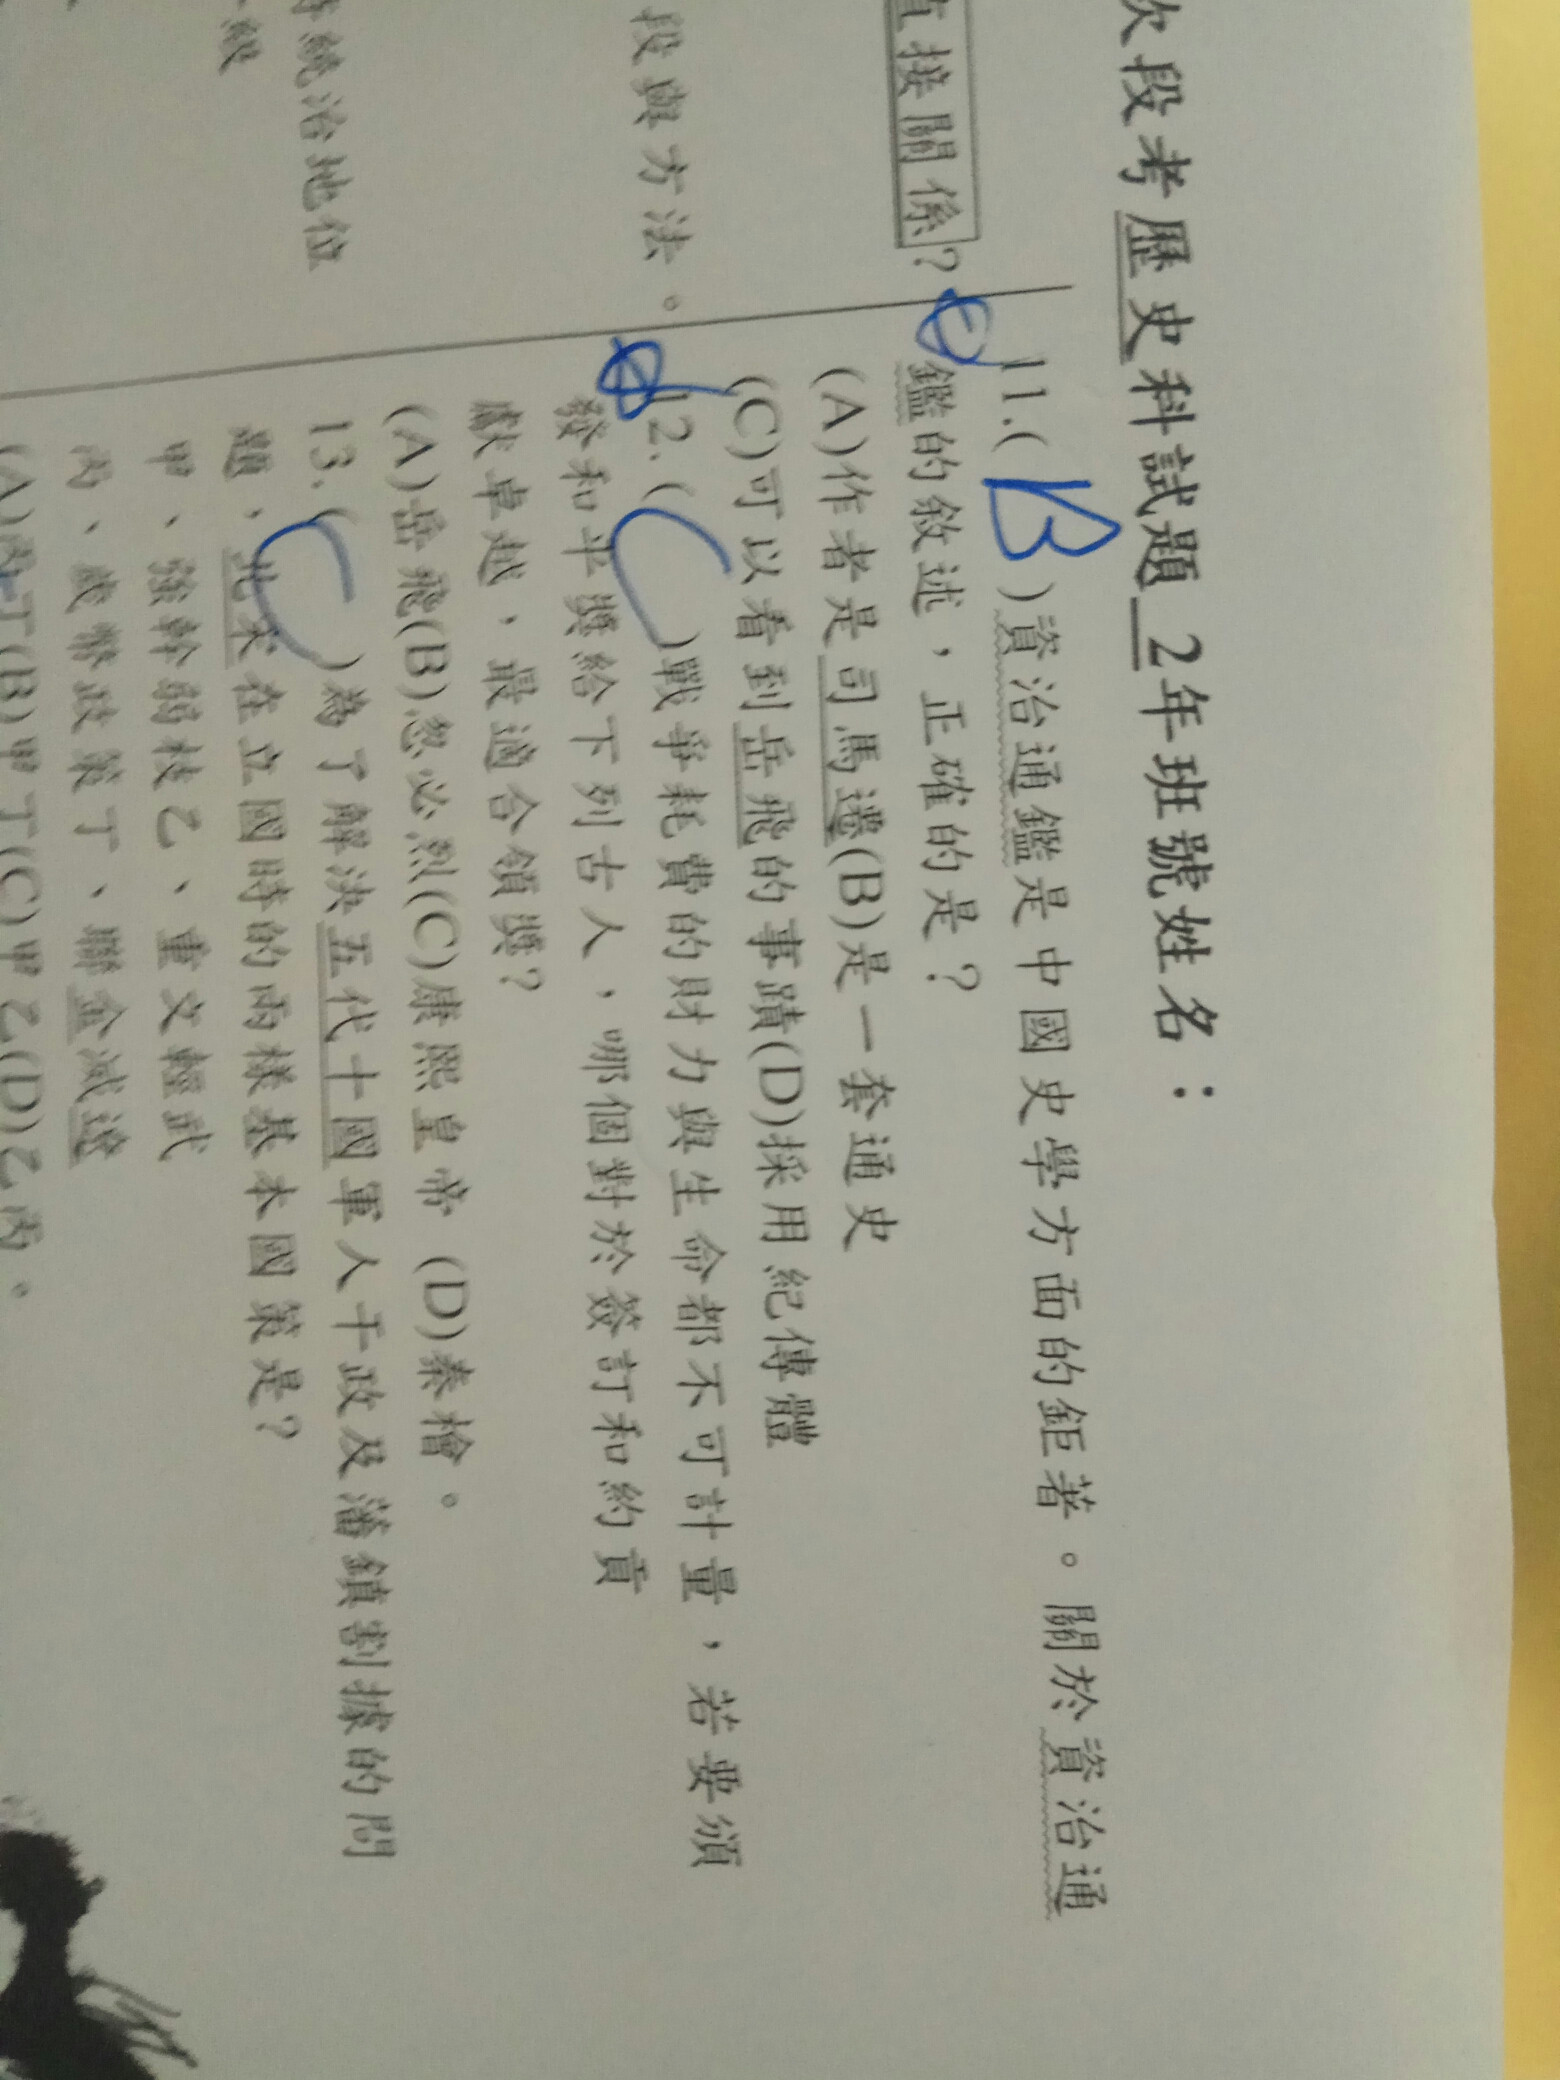 次段考歷史科試題 2年班號姓名：
直接關係?
段與方法。
統治地位
級
11.( B )資治通鑑是中國史學方面的鉅著。關於資治通
鑑的敘述，正確的是？
(A)作者是司馬遷(B)是一套通史
(C)可以看到岳飛的事蹟(D)採用紀傳體
12.( C )戰爭耗費的財力與生命都不可計量，若要頒
發和平獎給下列古人，哪個對於簽訂和約貢
獻卓越，最適合領獎?
(A)岳飛(B)忽必烈(C)康熙皇帝 (D)秦檜。
13.( C )為了解決五代十國軍人干政及藩鎮割據的問
題，北宋在立國時的兩樣基本國策是?
甲、強幹弱枝乙、重文輕武
丙、歲幣政策丁、聯金滅遼
(A)丙丁(B)甲丁(C)甲乙(D)乙丙。